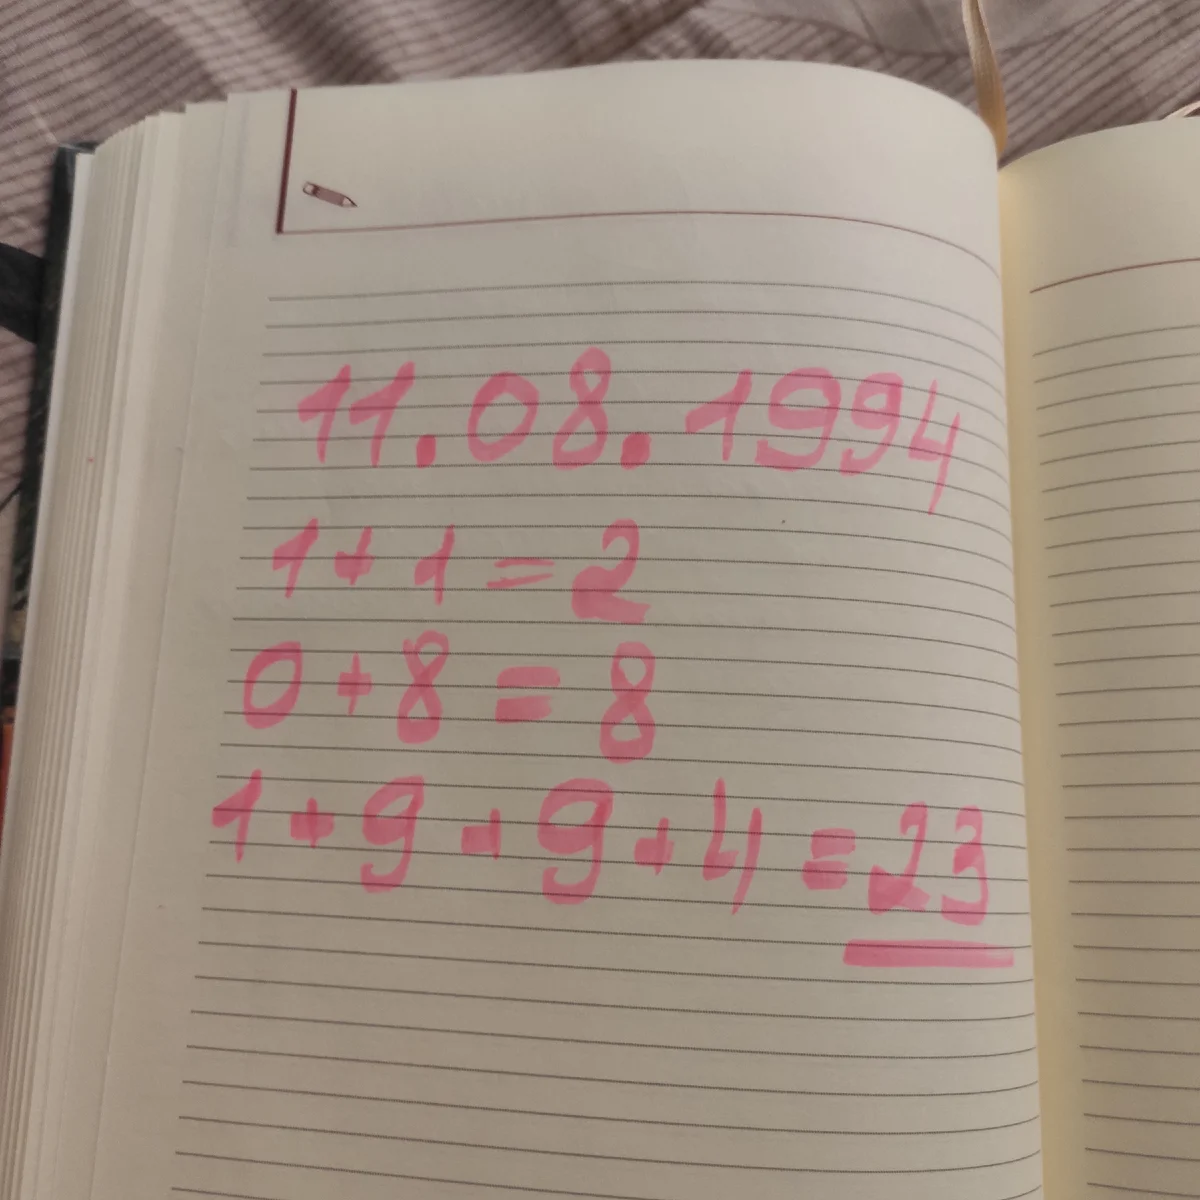 11.08.1994
1+1=2
0+8=8
1+9+9+4=23